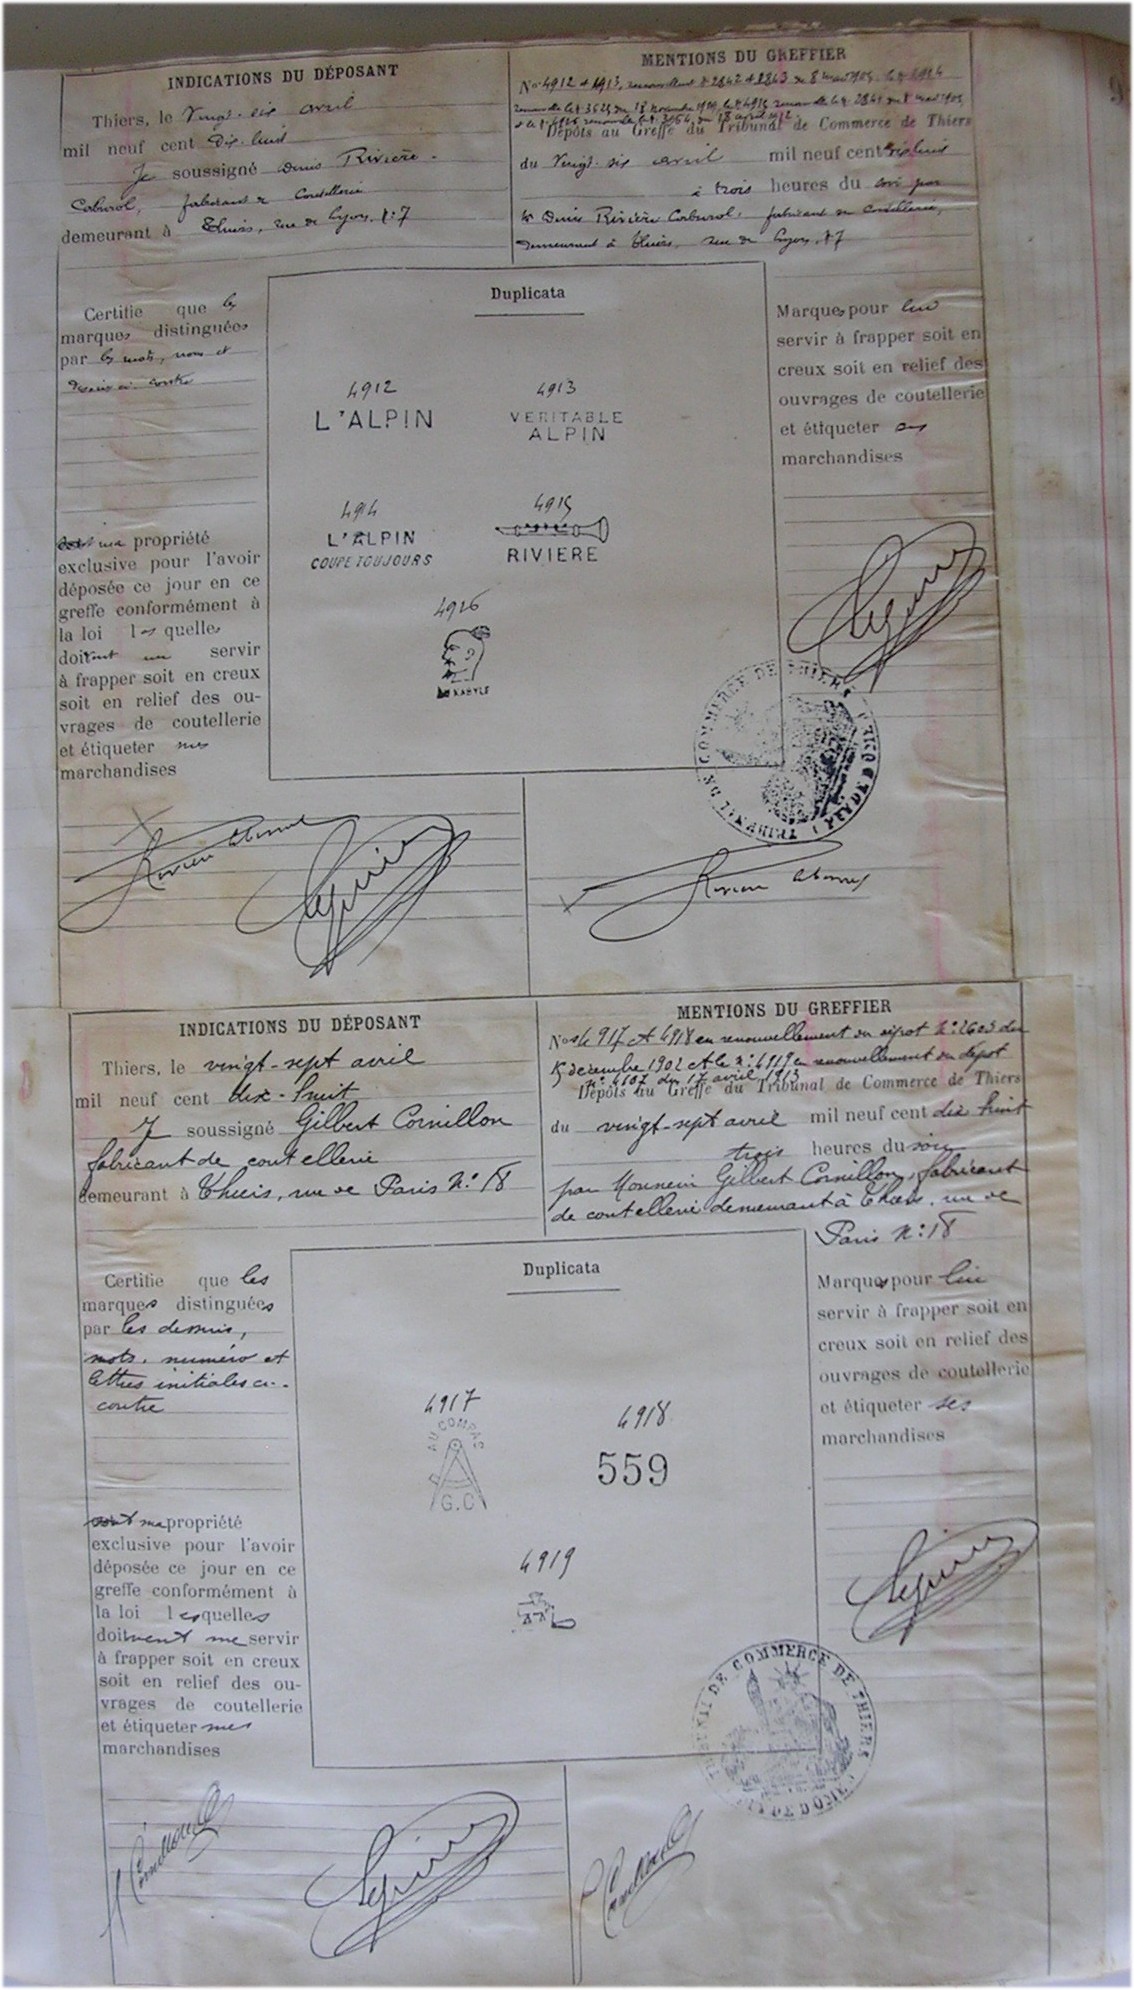 INDICATIONS DU DÉPOSANT
Thiers, le Vingt-six avril
mil neuf cent Dix-huit
Je soussigné Denis Rivière-
fabricant de Coutellerie
demeurant à Thiers, rue de Lyon, N: 7
MENTIONS DU GREFFIER
Nos 4912 et 4913,
Dépôts au Greffe du Tribunal de Commerce de Thiers
du Vingt-six avril mil neuf cent dix huit
à trois heures du soir par
Mr Denis Rivière fabricant de coutellerie,
demeurant à Thiers, rue de Lyon, N: 7
Certifie que les
marques distinguées
par les mots, nom et
dessin ci-contre
sont ma propriété
exclusive pour l'avoir
déposée ce jour en ce
greffe conformément à
la loi lesquelles
doivent me servir
à frapper soit en creux
soit en relief des ou-
vrages de coutellerie
et étiqueter mes
marchandises
Duplicata
4912
L'ALPIN
4913
VERITABLE
ALPIN
4914
L'ALPIN
COUPE TOUJOURS
4915
RIVIERE
4916
KABYLE
Marques pour lui
servir à frapper soit en
creux soit en relief des
ouvrages de coutellerie
et étiqueter ses
marchandises
TRIBUNAL DE COMMERCE DE THIERS (PUY DE DOME)
INDICATIONS DU DÉPOSANT
Thiers, le vingt-sept avril
mil neuf cent dix-huit
Je soussigné Gilbert Cornillon
fabricant de coutellerie
demeurant à Thiers, rue de Paris N: 18
MENTIONS DU GREFFIER
Nos 4917 et 4918 en renouvellement du dépot N: 2603 du
5 décembre 1902 et le n: 4919 en renouvellement du dépot
n: 4107 du 17 avril 1913
Dépôts au Greffe du Tribunal de Commerce de Thiers
du vingt-sept avril mil neuf cent dix huit
trois heures du soir
par Monsieur Gilbert Cornillon, fabricant
de coutellerie demeurant à Thiers, rue de
Paris N: 18
Certifie que les
marques distinguées
par les dessins,
mots, numéro et
lettres initiales ci-
contre
sont ma propriété
exclusive pour l'avoir
déposée ce jour en ce
greffe conformément à
la loi lesquelles
doivent me servir
à frapper soit en creux
soit en relief des ou-
vrages de coutellerie
et étiqueter mes
marchandises
Duplicata
4917
AU COMPAS
G.C
4918
559
4919
Marques pour lui
servir à frapper soit en
creux soit en relief des
ouvrages de coutellerie
et étiqueter ses
marchandises
TRIBUNAL DE COMMERCE DE THIERS (PUY DE DOME)